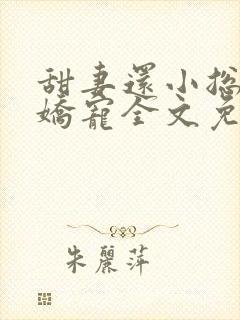 甜妻還小總
嬌寵全文免
朱麗萍